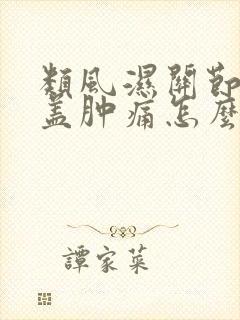 類風濕關節
盖肿痛怎麼
譚家菜